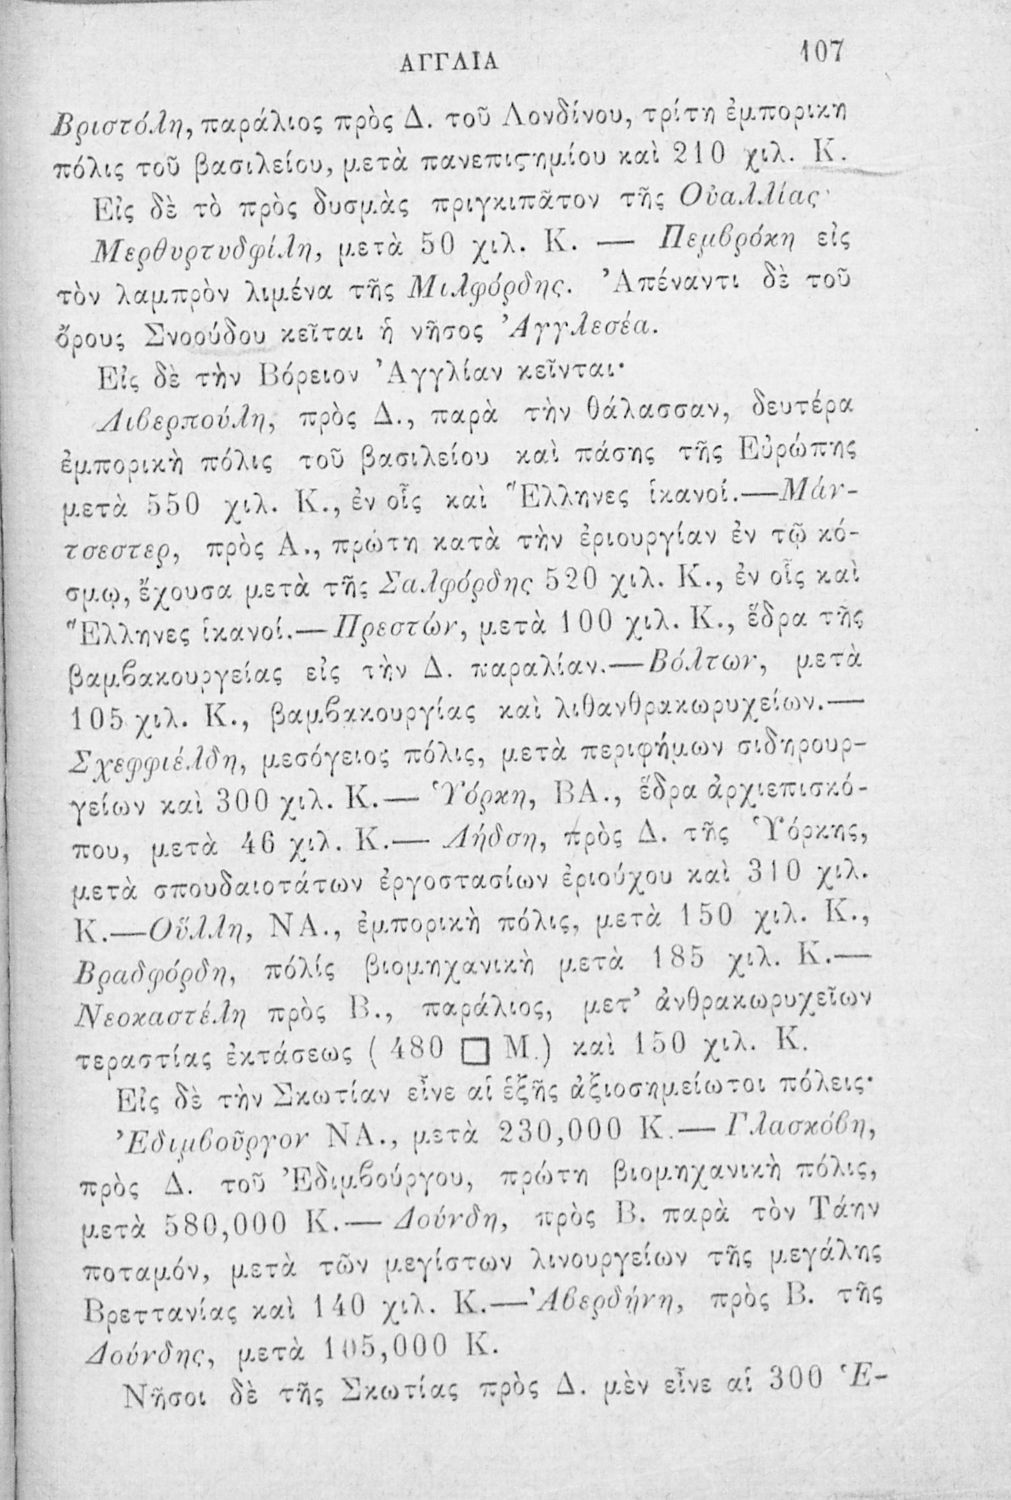 ΑΓΓΛΙΑ 107
Βριστόλη, παράλιος πρὸς Δ. τοῦ Λονδίνου, τρίτη ἐμπορικη
πόλις τοῦ βασιλείου, μετὰ πανεπιϛημίου καὶ 210 χιλ. Κ.
Εἰς δὲ τὸ πρὸς δυσμὰς πριγκιπᾶτον τῆς Οὐαλλίας·
Μερθυρτυδφίλη, μετὰ 50 χιλ. Κ. — Πεμβρόκη εἰς
τὸν λαμπρὸν λιμένα τῆς Μιλφόρδης. Ἀπέναντι δὲ τοῦ
ὄρους Σνοούδου κεῖται ἡ νῆσος Ἀγγλεσέα.
Εἰς δὲ τὴν Βόρειον Ἀγγλίαν κεῖνται·
Λιβερπούλη, πρὸς Δ., παρὰ τὴν θάλασσαν, δευτέρα
ἐμπορικὴ πόλις τοῦ βασιλείου καὶ πάσης τῆς Εὐρώπης
μετὰ 550 χιλ. Κ., ἐν οἷς καὶ Ἕλληνες ἱκανοί.—Μάν-
τσεστερ, πρὸς Α., πρώτη κατὰ τὴν ἐριουργίαν ἐν τῷ κό-
σμῳ, ἔχουσα μετὰ τῆς Σαλφόρδης 520 χιλ. Κ., ἐν οἷς καὶ
Ἕλληνες ἱκανοί.—Πρεστών, μετὰ 100 χιλ. Κ., ἕδρα τῆς
βαμβακουργείας εἰς τὴν Δ. παραλίαν.—Βόλτων, μετὰ
105 χιλ. Κ., βαμβακουργίας καὶ λιθανθρακωρυχείων.—
Σχεφφιέλδη, μεσόγειος πόλις, μετὰ περιφήμων σιδηρουρ-
γείων καὶ 300 χιλ. Κ.— Ὑόρκη, ΒΑ., ἕδρα ἀρχιεπισκό-
που, μετὰ 46 χιλ. Κ.— Λήδση, πρὸς Δ. τῆς Ὑόρκης,
μετὰ σπουδαιοτάτων ἐργοστασίων ἐριούχου καὶ 310 χιλ.
Κ.—Οὔλλη, ΝΑ., ἐμπορικὴ πόλις, μετὰ 150 χιλ. Κ.,
Βραδφόρδη, πόλίς βιομηχανικὴ μετὰ 185 χιλ. Κ.—
Νεοκαστέλη πρὸς Β., παράλιος, μετ’ ἀνθρακωρυχεῖων
τεραστίας ἐκτάσεως (480 □ Μ.) καὶ 150 χιλ. Κ.
Εἰς δὲ τὴν Σκωτίαν εἶνε αἱ ἑξῆς ἀξιοσημείωτοι πόλεις·
Ἐδιμβοῦργον ΝΑ., μετὰ 230,000 Κ.— Γλασκόβη,
πρὸς Δ. τοῦ Ἐδιμβούργου, πρώτη βιομηχανικὴ πόλις,
μετὰ 580,000 Κ.— Δούνδη, πρὸς Β. παρὰ τὸν Τάην
ποταμόν, μετὰ τῶν μεγίστων λινουργείων τῆς μεγάλης
Βρεττανίας καὶ 140 χιλ. Κ.—Ἀβερδήνη, πρὸς Β. τῆς
Δούνδης, μετὰ 105,000 Κ.
Νῆσοι δὲ τῆς Σκωτίας πρὸς Δ. μὲν εἶνε αἱ 300 Ἑ-